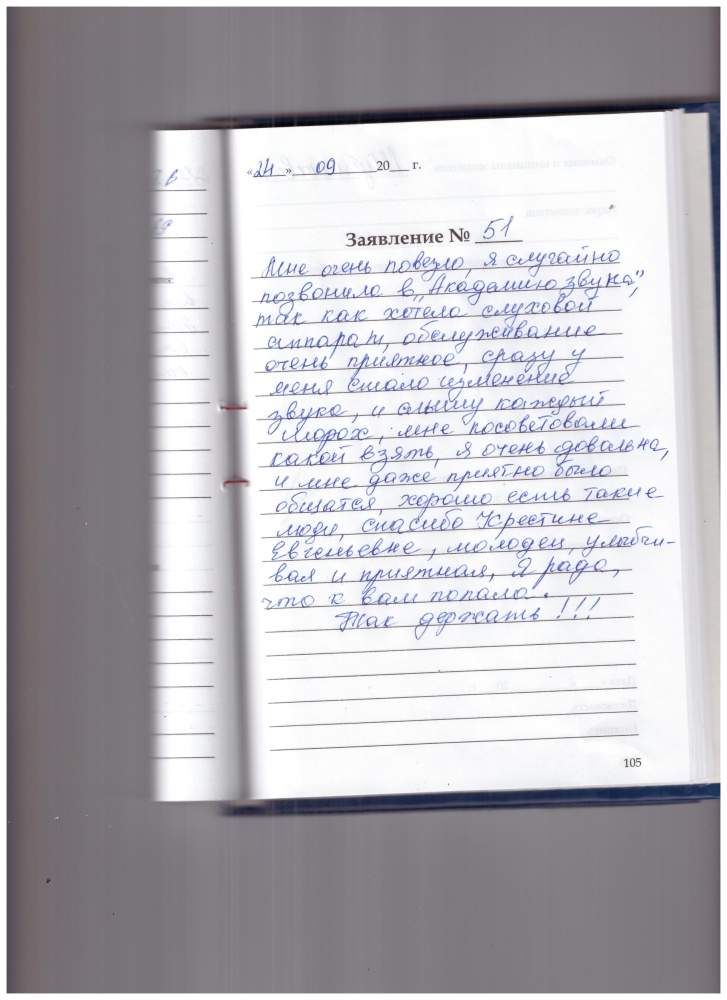 «24» 09 20 г.
Заявление № 51
Мне очень повезло, я случайно
позвонила в „Академию звука",
так как хотела слуховой
аппарат, обслуживание
очень приятное, сразу у
меня стало изменение
звука, и слышу каждый
шорох, мне посоветовали
какой взять, я очень довольна,
и мне даже приятно было
общатся, хорошо есть такие
люди, спасибо Крестине
Евгеньевне, молодец, улыбчи-
вая и приятная, Я рада,
что к вам попала.
Так держать!!!
105